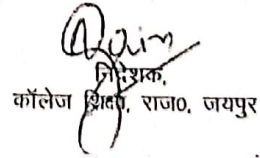 निदेशक,
कॉलेज शिक्षा, राज०, जयपुर